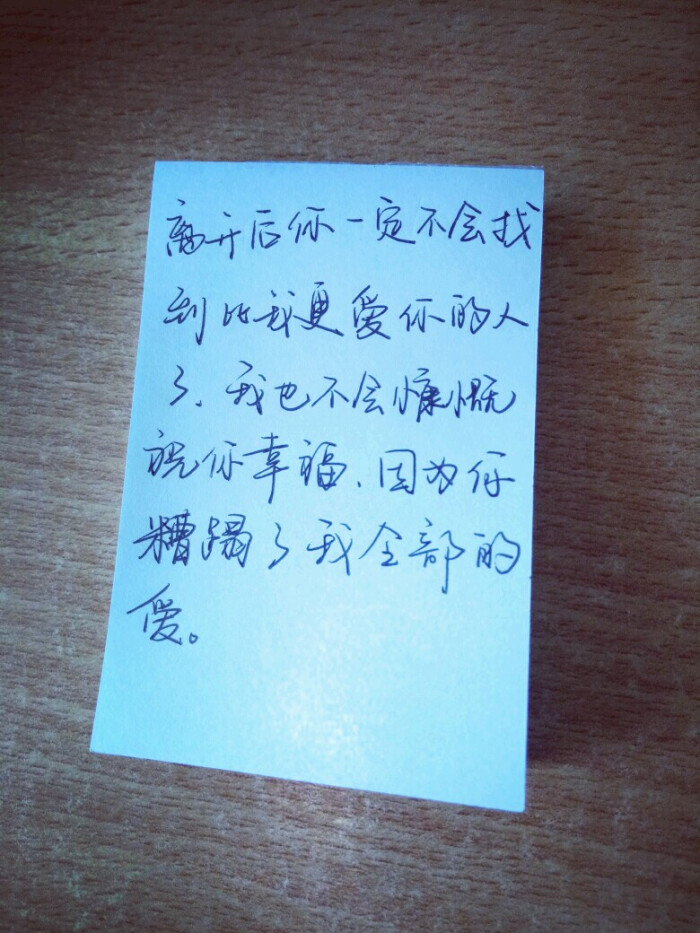 离开后你一定不会找
到比我更爱你的人
了.我也不会慷慨
祝你幸福.因为你
糟蹋了我全部的
爱。